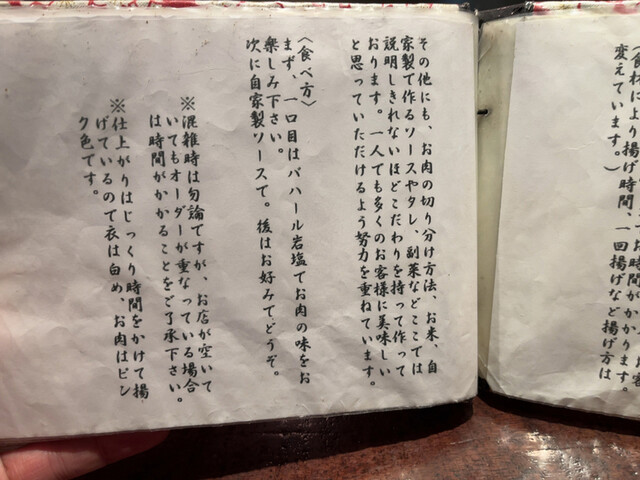 お時間がかかります。お客
(食材により揚げ時間、一回揚げなど揚げ方は
変えています。)
その他にも、お肉の切り分け方法、お米、自
家製で作るソースやタレ、副菜などここでは
説明しきれないほどこだわりを持って作って
おります。一人でも多くのお客様に美味しい
と思っていただけるよう努力を重ねています。
〈食べ方〉
まず、一口目はパハール岩塩でお肉の味をお
楽しみ下さい。
次に自家製ソースで。後はお好みでどうぞ。
※混雑時は勿論ですが、お店が空いて
いてもオーダーが重なっている場合
は時間がかかることをご了承下さい。
※仕上がりはじっくり時間をかけて揚
げているので衣は白め、お肉はピン
ク色です。